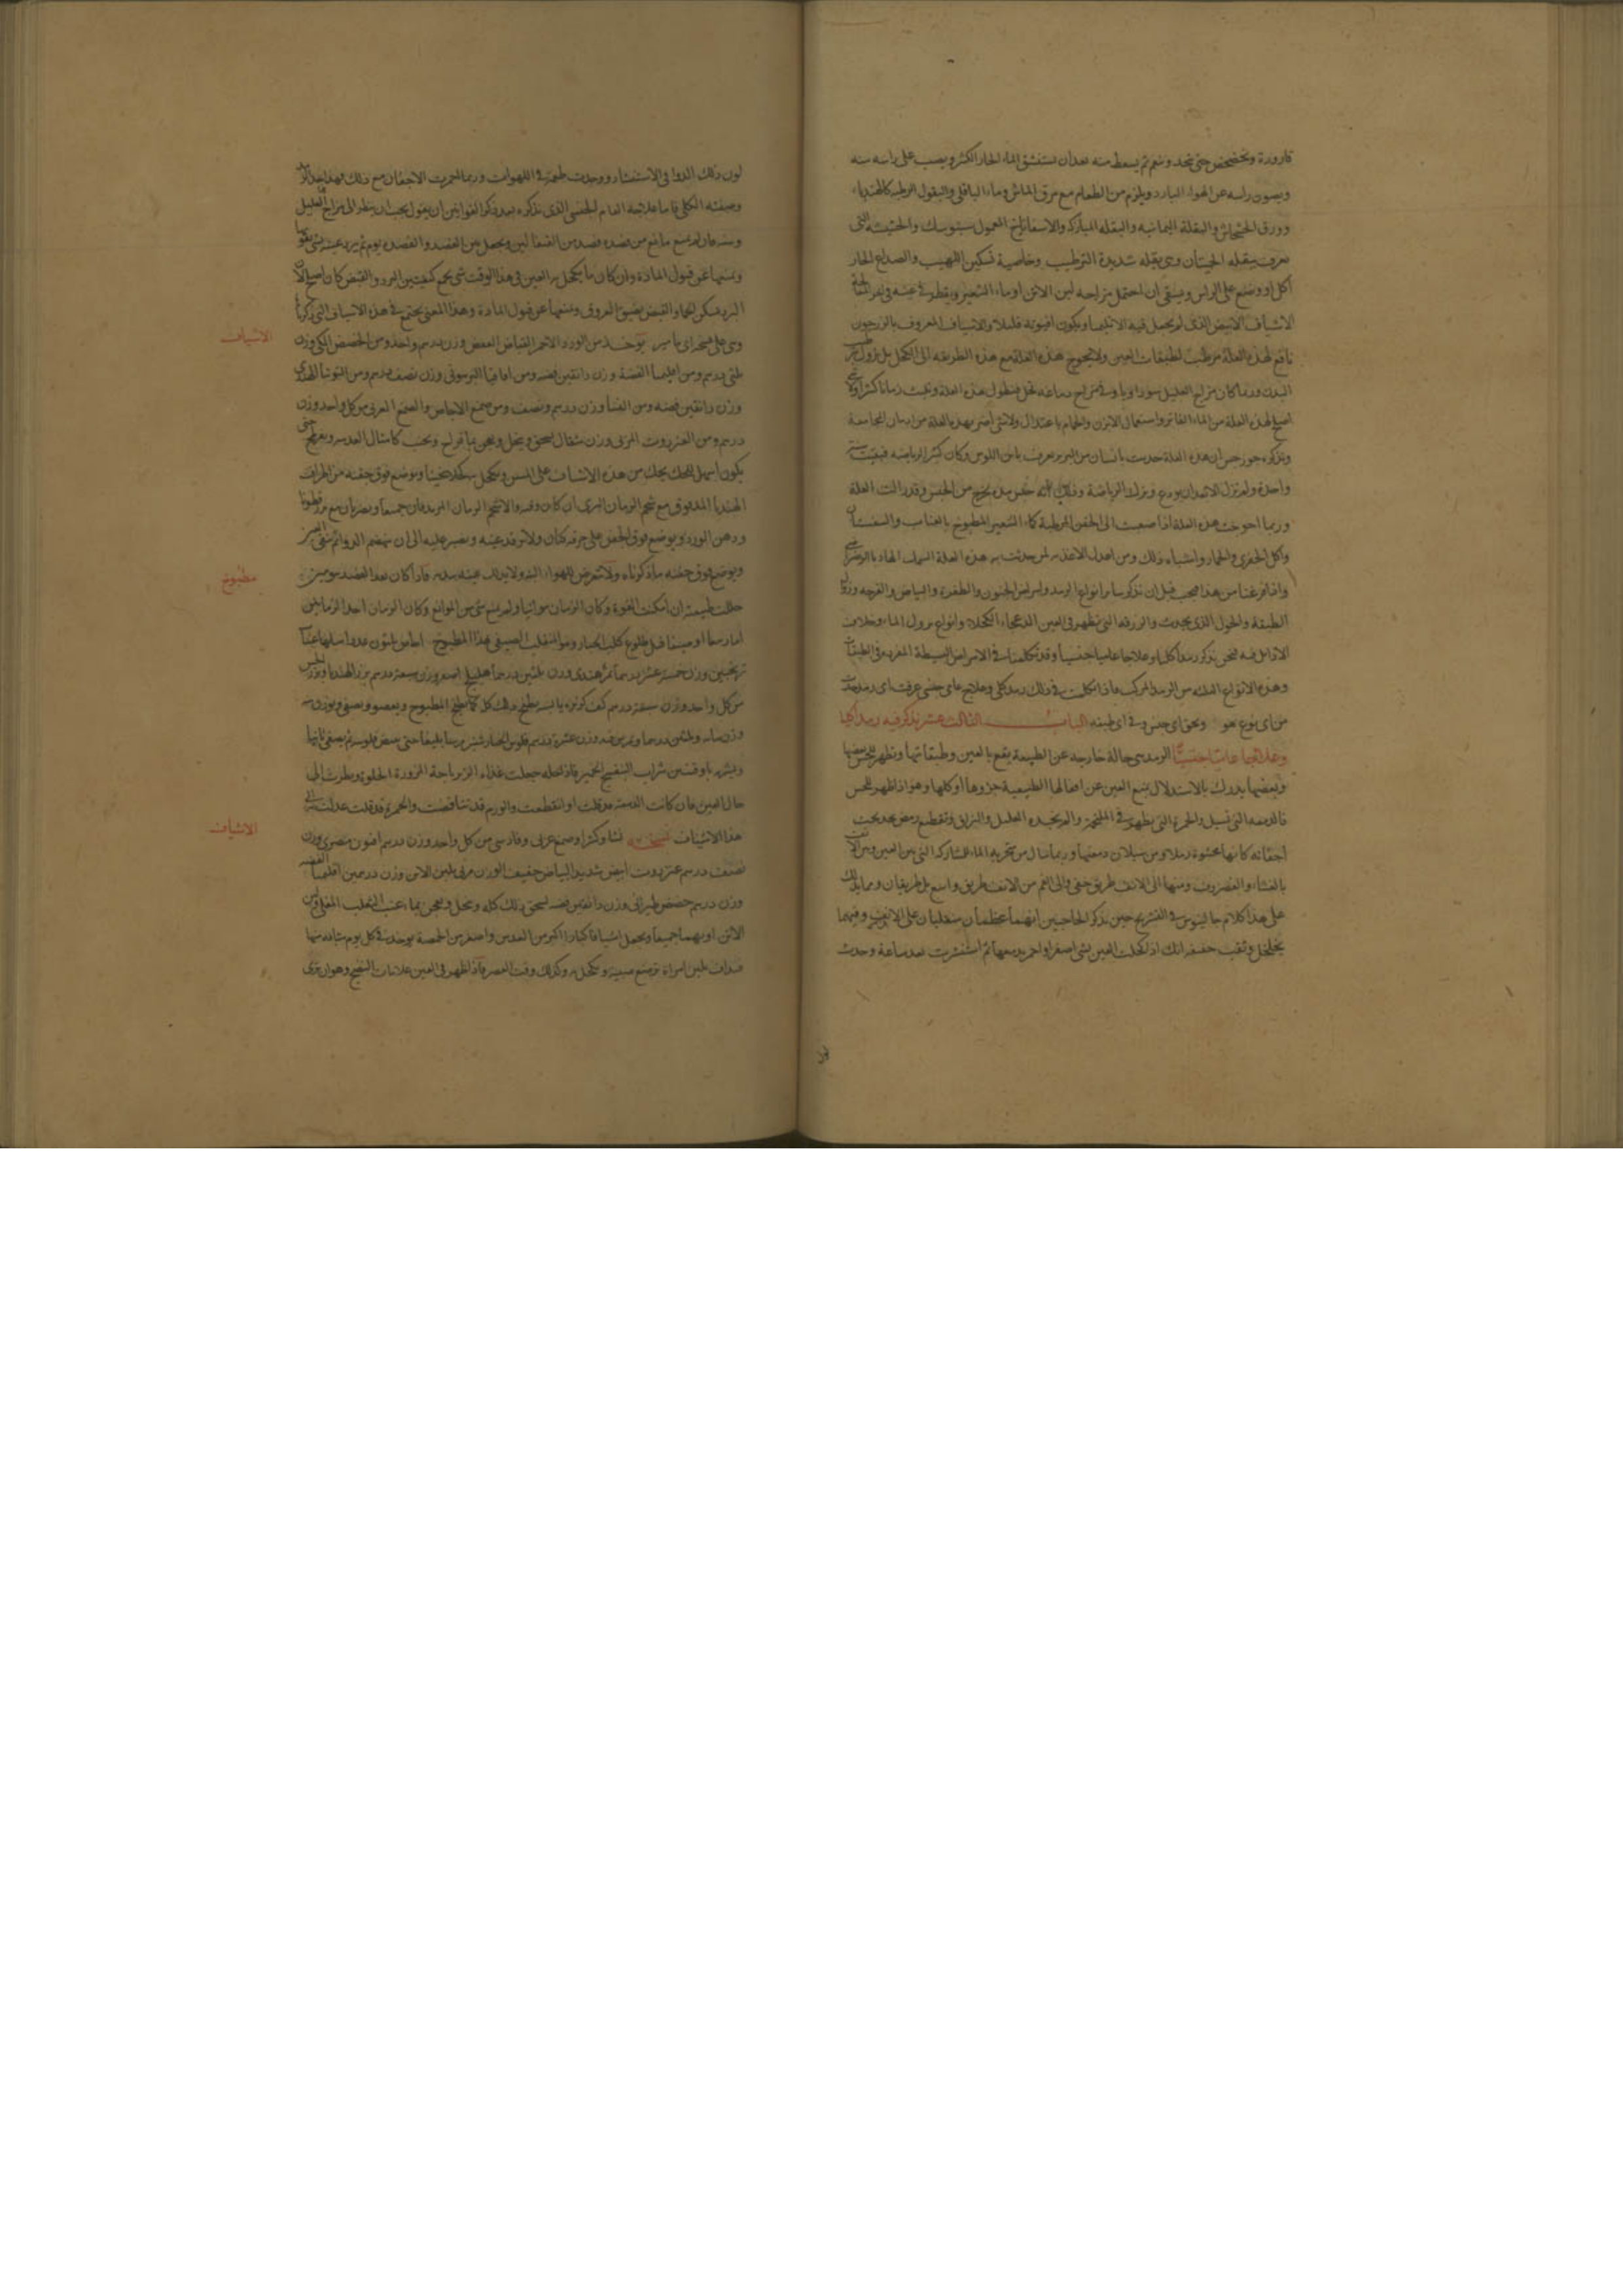 قارورة ويخضخض حتى تجمد وينعم ثم يسعط منه بعد ان يستنشق الماء الحار الكثير ويصب على راسه منه
ويصون راسه عن الهواء البارد ويلزم من الطعام مع مرق الماش وماء الباقلى والبقول الرطبة كالهندباء
وورق الخشخاش والبقلة اليمانية والبقلة المباركة والاسفاناخ المعمول والحشيشة التي
تعرف ببقلة الحيتان وهي بقلة شديدة الترطيب وخاصية تسكين اللهيب والصداع الحار
اكل او وضع على الراس ويسقى ان احتمل مزاجه لبن الاتن او ماء الشعير ويقطر في عينه
الاشياف الابيض الذي لم يجعل فيه الاقليميا ويكون افيونه قليلا والاشياف المعروف
نافع لهذه العلة مرطب لطبقات العين ولا يحوج هذه العلة مع هذه الطريقة الى الكحل بل يزول
البدن وربما كان مزاج العليل سوداويا وفي مزاج دماغه فتطول هذه العلة وتلبث زمانا كثيرا
اصلح لهذه العلة من الماء الفاتر واستعمال الابزن والحمام باعتدال ولا شيء اضر بهذه العلة من ادمان المجامعة
وذكر جورجس ان هذه العلة حدثت بانسان من البربر يعرف بابن اللوس وكان كثير الرياضة فبقيت سنة
واحدة ولم تزل الا بعد ان تودع وترك الرياضة وقد زالت العلة
وربما احوجت هذه العلة اذا صعبت الى الحقن المرطبة كماء الشعير المطبوخ بالعناب والسفستان
واكل الجفري والخمار واشباه ذلك ومن اعدل الاغذية لمن حدثت به هذه العلة السمك
واذا فرغنا من هذا فيجب قبل ان نذكر سائر انواع الرمد وامراض الجفون والظفرة والبياض والقرحة
الطبقة والحول الذي يحدث والزرقة التي تظهر في العين الدعجاء الكحلاء وانواع نزول الماء وخلاف
الاوائل فيه فنحن نذكر رمدا كليا وعلاجا عاميا جنسيا وقد تكلمنا في الامراض البسيطة المفردة في الطبقات
وهذه الانواع الثلثة من الرمد المركب فاذا تكلمت في ذلك رمد كلي وعلاج عامي جنسي عرفت اي رمد حدث
من اي نوع هو وتحت اي جنس وفي اي طبقة الباب الثالث عشر نذكر فيه رمدا كليا
وعلاجا عاميا جنسيا الرمد هي حالة خارجة عن الطبيعة تقع بالعين وطبقاتها ويظهر للحس بعضها
وبعضها يدرك بالاستدلال يمنع العين عن افعالها الطبيعية جزوها او كلها وهو اذا ظهر للحس
فالدمعة التي تسيل والحمرة التي تظهر في الملتحمة والم يجده العليل
اجفانه كانها محشوة رملا ومن سيلان دمعها وربما سال من منخريه الماء للمشاركة التي بين العين وبين الانف
بالغشاء والغضروف ومنها الى الانف طريق خفي والى الفم من الانف طريق واسع بل طريقان ومما يدلك
على هذا كلام جالينوس في التشريح حين يذكر الحاجبين انهما عظمان على الانف وفيهما
تخلخل وثقب خفية انك اذا كحلت العين بشيء اصفر او احمر ثم استنثرت بعد ساعة وجدت
لون ذلك الدوا في الاستنثار ووجدت طعمه في اللهوات وربما احمرت الاجفان مع ذلك فهذا حد الرمد
وصفته الكلي فاما علاجه العام الجنسي الذي نذكره بعد ذكر القوانين ان نقول يجب ان ينظر الى مزاج العليل
وسنه فان لم يمنع مانع من فصده فصد من القيفالين ويجعل بين الفصد والفصد يوم ثم يرد عينه بشيء يقويها
ويمنعها عن قبول المادة وان كان ما يكحل به العين في هذا الوقت شيء يجمع كيفيتين البرد والقبض كان اصلح لان
البرد يسكن الحما والقبض يضيق العروق ويمنعها عن قبول المادة وهذا المعنى يجتمع في هذه الاشياف التي ذكرها
الاشياف
وهي على نسخة يوخذ من الورد الاحمر القباض الغض وزن درهم واحد ومن الحضض المكي وزن
ثلثي درهم ومن اقليميا الفضة وزن دانقين فضة ومن اقاقيا وزن نصف درهم ومن التوتيا الهندي
وزن دانقين فضة ومن النشا وزن درهم ونصف ومن صمغ الاجاص والصمغ العربي من كل واحد وزن
درهم ومن العنزروت المربى وزن مثقال يسحق وينخل ويعجن بماء قراح ويحبب كامثال العدسة
يكون اسهل للحك يحك من هذه الاشياف على المسن ويكحل به كحلا ثخينا ويوضع فوق جفنه من اطراف
الهندبا المدقوق مع شحم الرمان البري ان كان وقته والا شحم الرمان المز يدقان جميعا ويضربان مع بزر قطونا
ودهن الورد ويوضع فوق الجفن على خرقة كتان ولا ترفد عينه ويصبر عليه الى ان يهضم الدوا ثم ينقى العين
مطبوخ
ويوضع فوق جفنه ما ذكرناه ولا يتعرض للهواء البتة ولا يدلك عينه بيده فاذا كان بعد الفصد بيومين
حللت طبيعته ان امكنت القوة وكان الزمان مواتيا ولم يمنع شيء من الموانع وكان الزمان احد الزمانين
اما ربيعا او صيفا قبل طلوع كلب الجبار ومن المنقلب الصيفي بهذا المطبوخ اجاص ثلثون عددا مثلها عناب
ترنجبين وزن خمسة عشر درهما تمر هندي وزن ثلثين درهما اهليلج اصفر وزن سبعة درهم بزر الهندبا
من كل واحد وزن سبعة درهم كف كزبره يابسة يطبخ ذلك كله كما يطبخ المطبوخ ويعصر ويصفى ويوزن منه
وزن مائة وثلثين درهما ويمرس فيه وزن عشرة درهم فلوس الخيار شنبر مرسا بليغا حتى يبيض فلوسه ثم يصفى ثانيا
ويشربه باوقيتين شراب البنفسج الخمير فاذا حله جعلت غذاه الزيرباجة المزورة الحلوة ونظرت الى
حال العين فان كانت الدمعة قد قلت او انقطعت والورم قد تناقصت والحمرة قد قلت عدلت الى
الاشياف
هذا الاشياف نسخته نشا وكثيرا وصمغ عربي وفارسي من كل واحد وزن درهم افيون مصري وزن
نصف درهم عنزروت ابيض شديد البياض خفيف الوزن مربى بلبن الاتن وزن درهمين اقليميا الفضة
وزن درهم حضض وزن دانقين فضة يسحق ذلك كله وينخل ويعجن بماء عنب الثعلب المغلي ولبن
الاتن او بهما جميعا ويجعل اشيافا كبارا اكبر من العدس واصغر من الحمصة يوخذ في كل يوم شيافة منها
فتداف بلبن امراة ترضع صبية ويكحل به وكذلك وقت العصر فاذا ظهر في العين علامات النضج وهو ان ترى